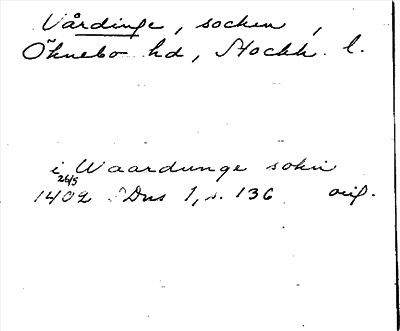 Vårdinge, socken,
Öknebo hd, Stockh. l.
i Waardunge sokn
26/5
1402 Dns 1, s. 136 orig.